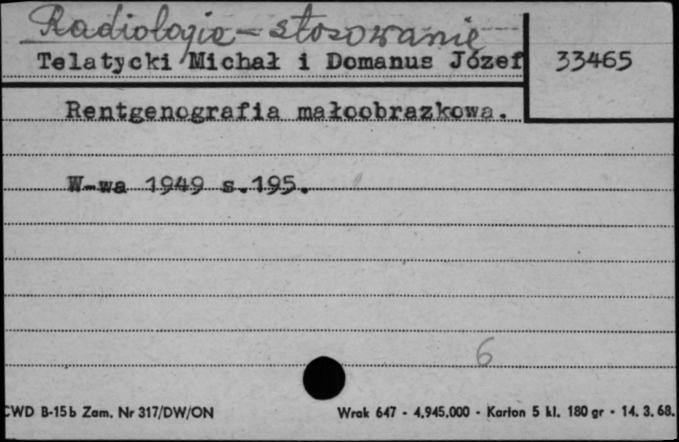 Radiologia - stosowanie
Telatycki Michał i Domanus Józef
33465
Rentgenografia małoobrazkowa.
W-wa 1949 s.195.
6
CWD B-15b Zam. Nr 317/DW/ON
Wrak 647 - 4.945.000 - Karton 5 kl. 180 gr - 14. 3. 68.